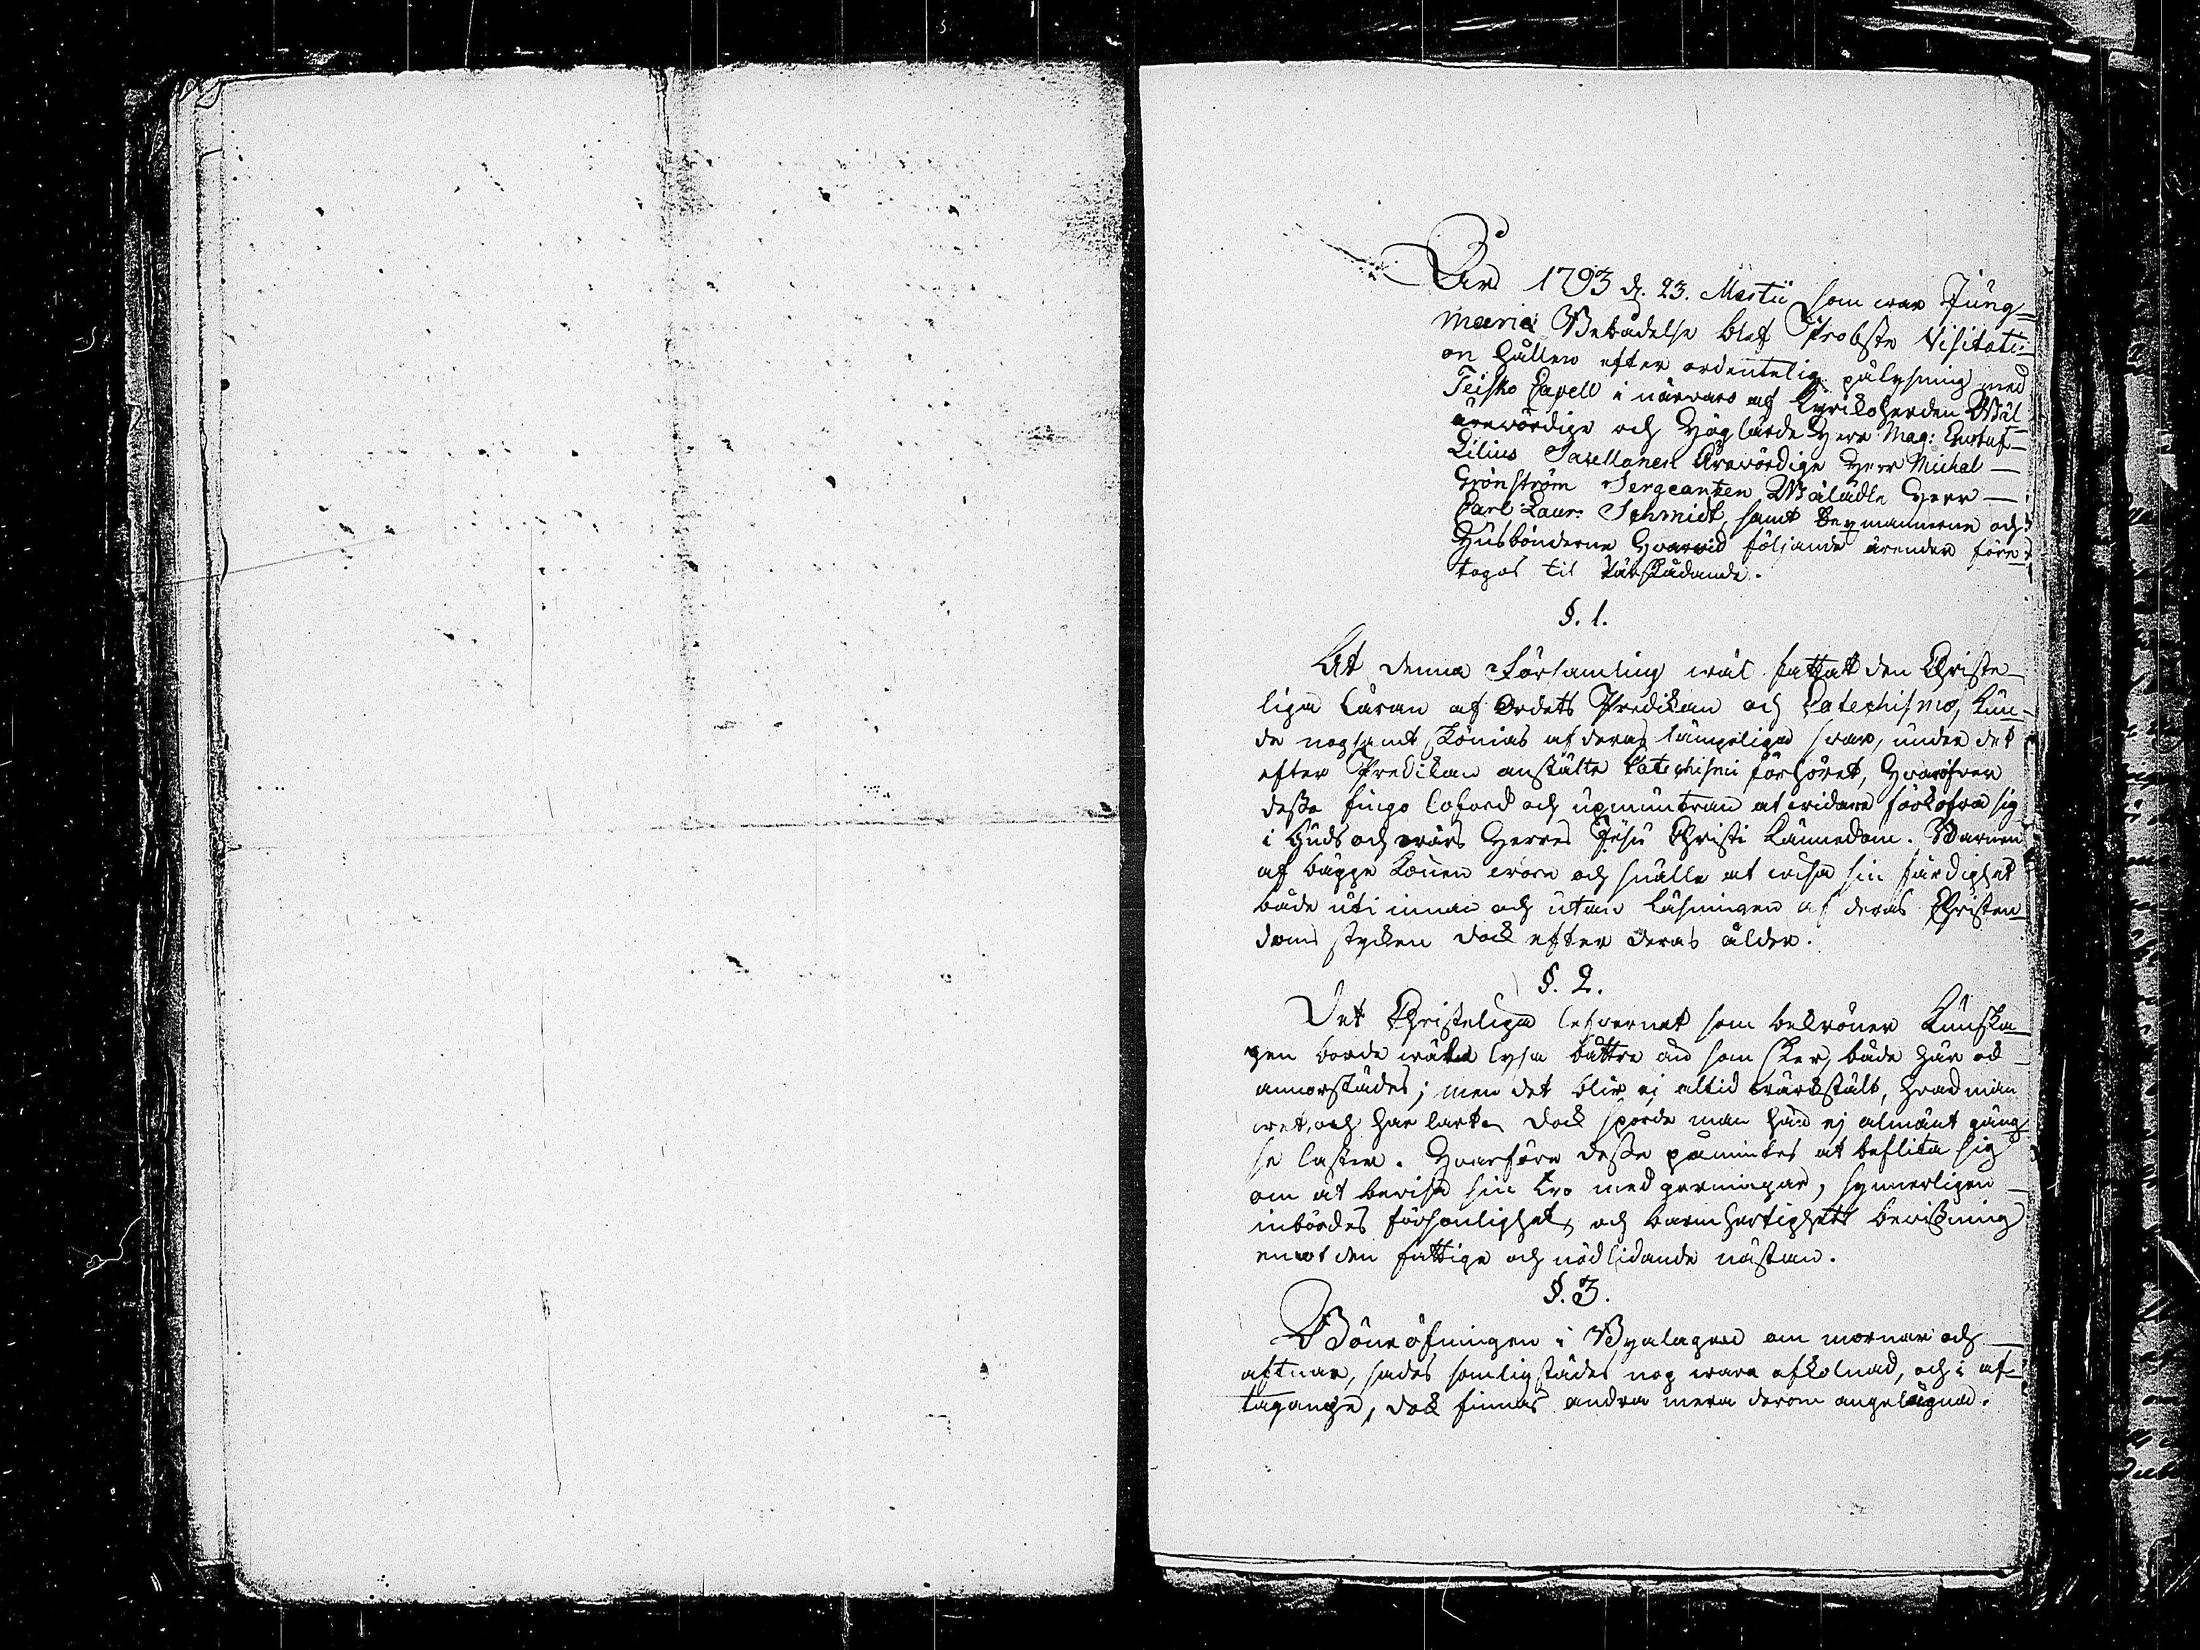 Åhr 1793 d. 23. Martii som war Jung-
Mariæ Bebådelse blef Probste Visitati-
on hållen efter ordentelig pålysning med
Teisko Capell i närvaro af Kyrkoherden Wäl-
ärevördige och Höglärde Herr Mag: Gustaf
Lilius Sacellanen Ärevördige Herr Michal
Grönström Sergeanten Wälädle Herr
Carl Laur: Schmidt, samt Sexmännerne och
Husbönderne Hvarvid följande ärender före-
togos til skådande.
§. 1.
At denna Församling wäl fattatt den Christe-
liga Läran af Ordets Predikan och Catechismo, kun-
de nogsamt skönjas af deras lämpeliga svar, under det
efter Predikan anstälte Catechismi förhöret, Hvaröfver
desse fingo loford och upmuntran at vidare förkofra sig
i Guds och wårs Herres Jesu Christi kännedom. Barnen
af bägge Könen woro och snälle at wisa sin färdighet
både uti innan och utan läsningen af deras Christen-
doms stycken dock efter deras ålder.
§. 2.
Det Christeliga lefvernet som bekröner Kunska-
pen borde wäl lysa bättre än som sker, både här och
annorstädes; men det blir ej altid wärkstält, hvad man
wet, och har lärt. Dock sporde man här ej almänt gäng-
se laster. Hvarföre desse påmintes at beflita sig
om at bevisa sin tro med gerningar, synnerligen
inbördes försonlighet, och barmhertighets bevisning
emot den fattige och nödlidande nästan.
§. 3.
Böneöfningen i Byalagen om mornar och
aftnar, sades somligstädes nog wara afkolnad, och i af-
tagande, dock finnas andra mera derom angelägna.